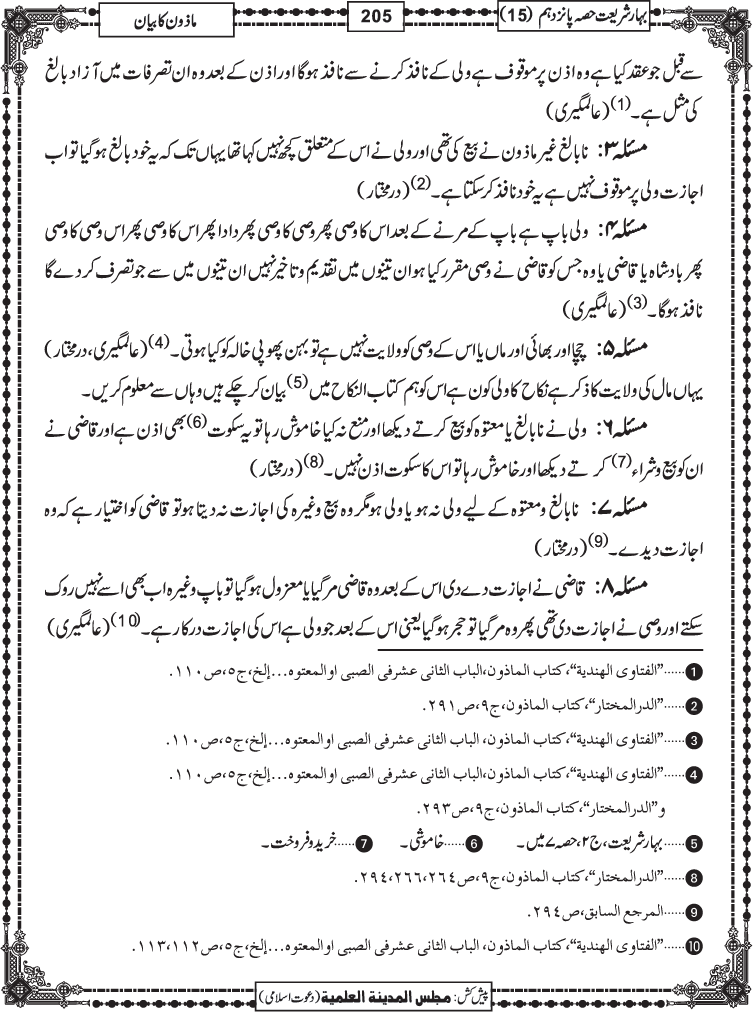 بہار شریعت حصہ پانزدہم (15)
205
ماذون کا بیان
سے قبل جو عقد کیا ہے وہ اذن پر موقوف ہے ولی کے نافذ کرنے سے نافذ ہوگا اور اذن کے بعد وہ ان تصرفات میں آزاد بالغ
کی مثل ہے۔(1) (عالمگیری)
مسئلہ ۳: نابالغ غیر ماذون نے بیع کی تھی اور ولی نے اس کے متعلق کچھ نہیں کہا تھا یہاں تک کہ یہ خود بالغ ہوگیا تو اب
اجازت ولی پر موقوف نہیں ہے یہ خود نافذ کرسکتا ہے۔(2) (درمختار)
مسئلہ ۴: ولی باپ ہے باپ کے مرنے کے بعد اس کا وصی پھر وصی کا وصی پھر دادا پھر اس کا وصی پھر اس وصی کا وصی
پھر بادشاہ یا قاضی یا وہ جس کو قاضی نے وصی مقرر کیا ہو ان تینوں میں تقدیم و تاخیر نہیں ان تینوں میں سے جو تصرف کردے گا
نافذ ہوگا۔(3) (عالمگیری)
مسئلہ ۵: چچا اور بھائی اور ماں یا اس کے وصی کو ولایت نہیں ہے تو بہن پھوپی خالہ کو کیا ہوتی۔(4) (عالمگیری، درمختار)
یہاں مال کی ولایت کا ذکر ہے نکاح کا ولی کون ہے اس کو ہم کتاب النکاح میں(5) بیان کرچکے ہیں وہاں سے معلوم کریں۔
مسئلہ ۶: ولی نے نابالغ یا معتوہ کو بیع کرتے دیکھا اور منع نہ کیا خاموش رہا تو یہ سکوت(6) بھی اذن ہے اور قاضی نے
ان کو بیع و شراء(7) کرتے دیکھا اور خاموش رہا تو اس کا سکوت اذن نہیں۔(8) (درمختار)
مسئلہ ۷: نابالغ و معتوہ کے لیے ولی نہ ہو یا ولی ہو مگر وہ بیع وغیرہ کی اجازت نہ دیتا ہو تو قاضی کو اختیار ہے کہ وہ
اجازت دیدے۔(9) (درمختار)
مسئلہ ۸: قاضی نے اجازت دے دی اس کے بعد وہ قاضی مرگیا یا معزول ہوگیا تو باپ وغیرہ اب بھی اسے نہیں روک
سکتے اور وصی نے اجازت دی تھی پھر وہ مرگیا تو حجر ہوگیا یعنی اس کے بعد جو ولی ہے اس کی اجازت درکار ہے۔(10) (عالمگیری)
1......"الفتاوی الھندیة"،کتاب الماذون،الباب الثانی عشرفی الصبی اوالمعتوہ...إلخ،ج٥،ص١١٠.
2......"الدرالمختار"،کتاب الماذون،ج٩،ص٢٩١.
3......"الفتاوی الھندیة"،کتاب الماذون، الباب الثانی عشرفی الصبی اوالمعتوہ...إلخ،ج٥،ص١١٠.
4......"الفتاوی الھندیة"،کتاب الماذون، الباب الثانی عشرفی الصبی اوالمعتوہ...إلخ،ج٥،ص١١٠.
و"الدرالمختار"،کتاب الماذون،ج٩،ص٢٩٣.
5......بہار شریعت، ج۲، حصہ ۷ میں۔ 6......خاموشی۔ 7......خرید و فروخت۔
8......"الدرالمختار"،کتاب الماذون،ج٩،ص٢٦٤،٢٦٦،٢٩٤.
9......المرجع السابق،ص٢٩٤.
10......"الفتاوی الھندیة"،کتاب الماذون، الباب الثانی عشرفی الصبی اوالمعتوہ...إلخ،ج٥،ص١١٢،١١٣.
پیش کش: مجلس المدینة العلمیة (دعوت اسلامی)